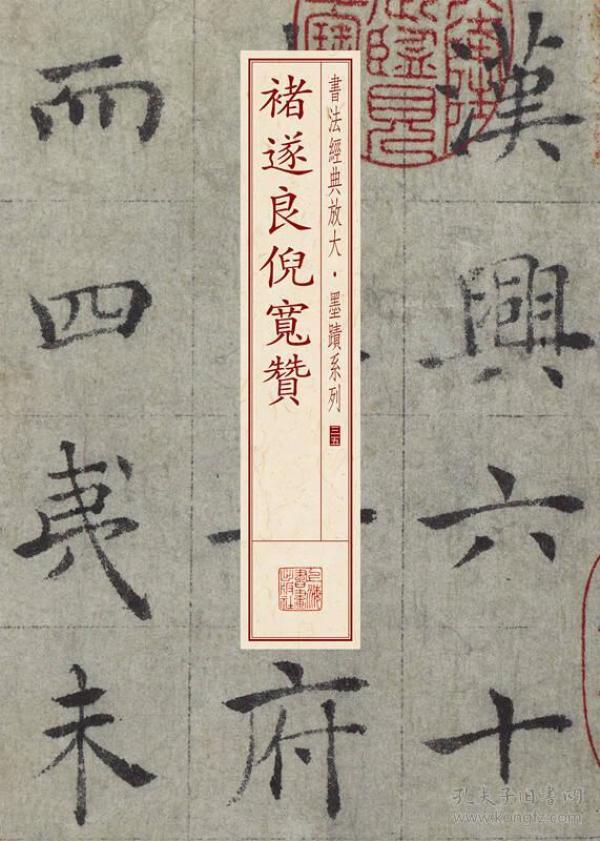 漢興六十
書法經典放大·墨蹟系列 三五
褚遂良倪寬贊
上海書畫出版社
府
而四夷未
孔夫子旧书网
www.kongfz.com